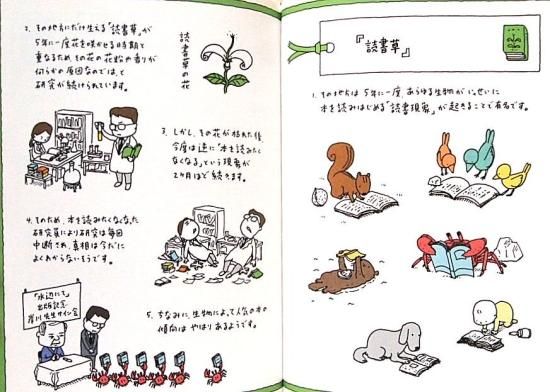 『読書草』
1. その地方は5年に一度、あらゆる生物がいっせいに
本を読みはじめる「読書現象」が起きることで有名です。
読書草の花
2. その地方にだけ生える「読書草」が
5年に一度花を咲かせる時期と
重なるため、その花の花粉の香りが
何らかの原因なのでは、と
研究が続けられています。
3. しかし、その花が枯れた後
今度は逆に「本を読みたく
なくなる」という現象が
2ヶ月ほど続きます。
4. そのため、本を読みたくなくなった
研究員により研究は毎回
中断され、真相は今だに
よくわからないそうです。
「水辺にて」
出版記念
先生サイン会
5. ちなみに、生物によって人気の本の
傾向はやはりあるようです。